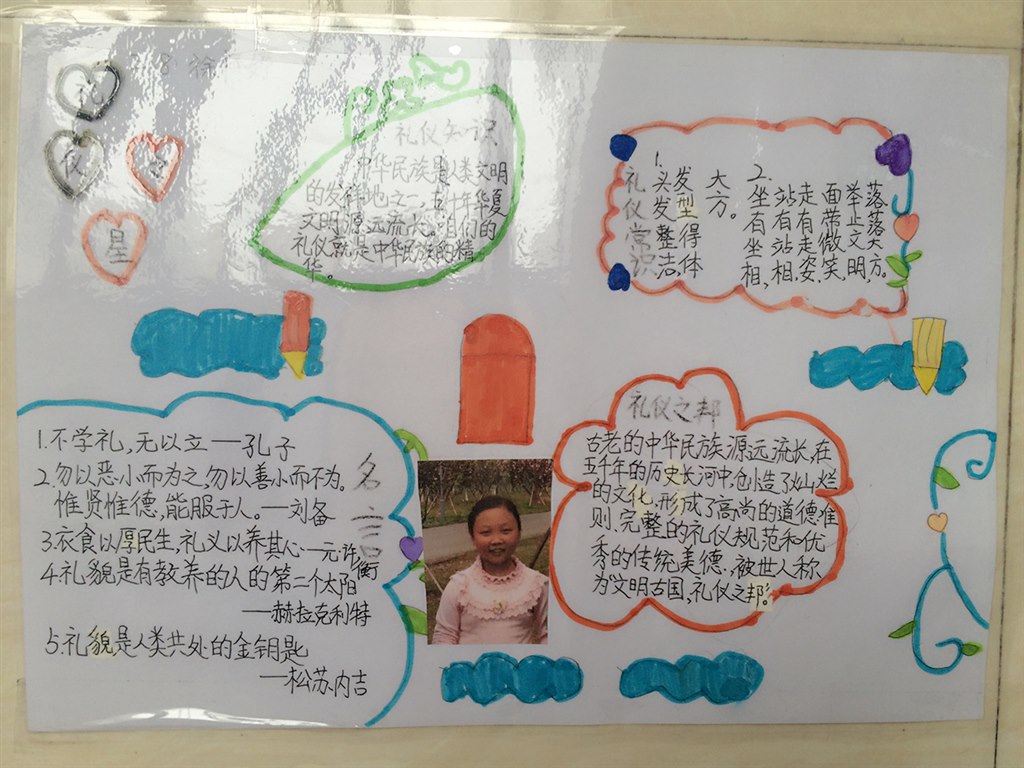 8 徐
礼
仪
之
星
礼仪知识
中华民族是人类文明
的发祥地之一,五千年华夏
文明源远流长。咱们的
礼仪就是中华民族的精
华。
礼仪常识
1.
头发整洁,
发型得体
大方。
2.
坐有坐相,
站有站相,
走有走姿,
面带微笑,
举止文明,
落落大方。
名言
1.不学礼,无以立——孔子
2.勿以恶小而为之,勿以善小而不为。
惟贤惟德,能服于人。—刘备
3.衣食以厚民生,礼义以养其心—元许衡
4.礼貌是有教养的人的第二个太阳
—赫拉克利特
5.礼貌是人类共处的金钥匙
—松苏内吉
礼仪之邦
古老的中华民族源远流长,在
五千年的历史长河中,创造了灿烂
的文化,形成了高尚的道德准
则、完整的礼仪规范和优
秀的传统美德,被世人称
为"文明古国,礼仪之邦"。